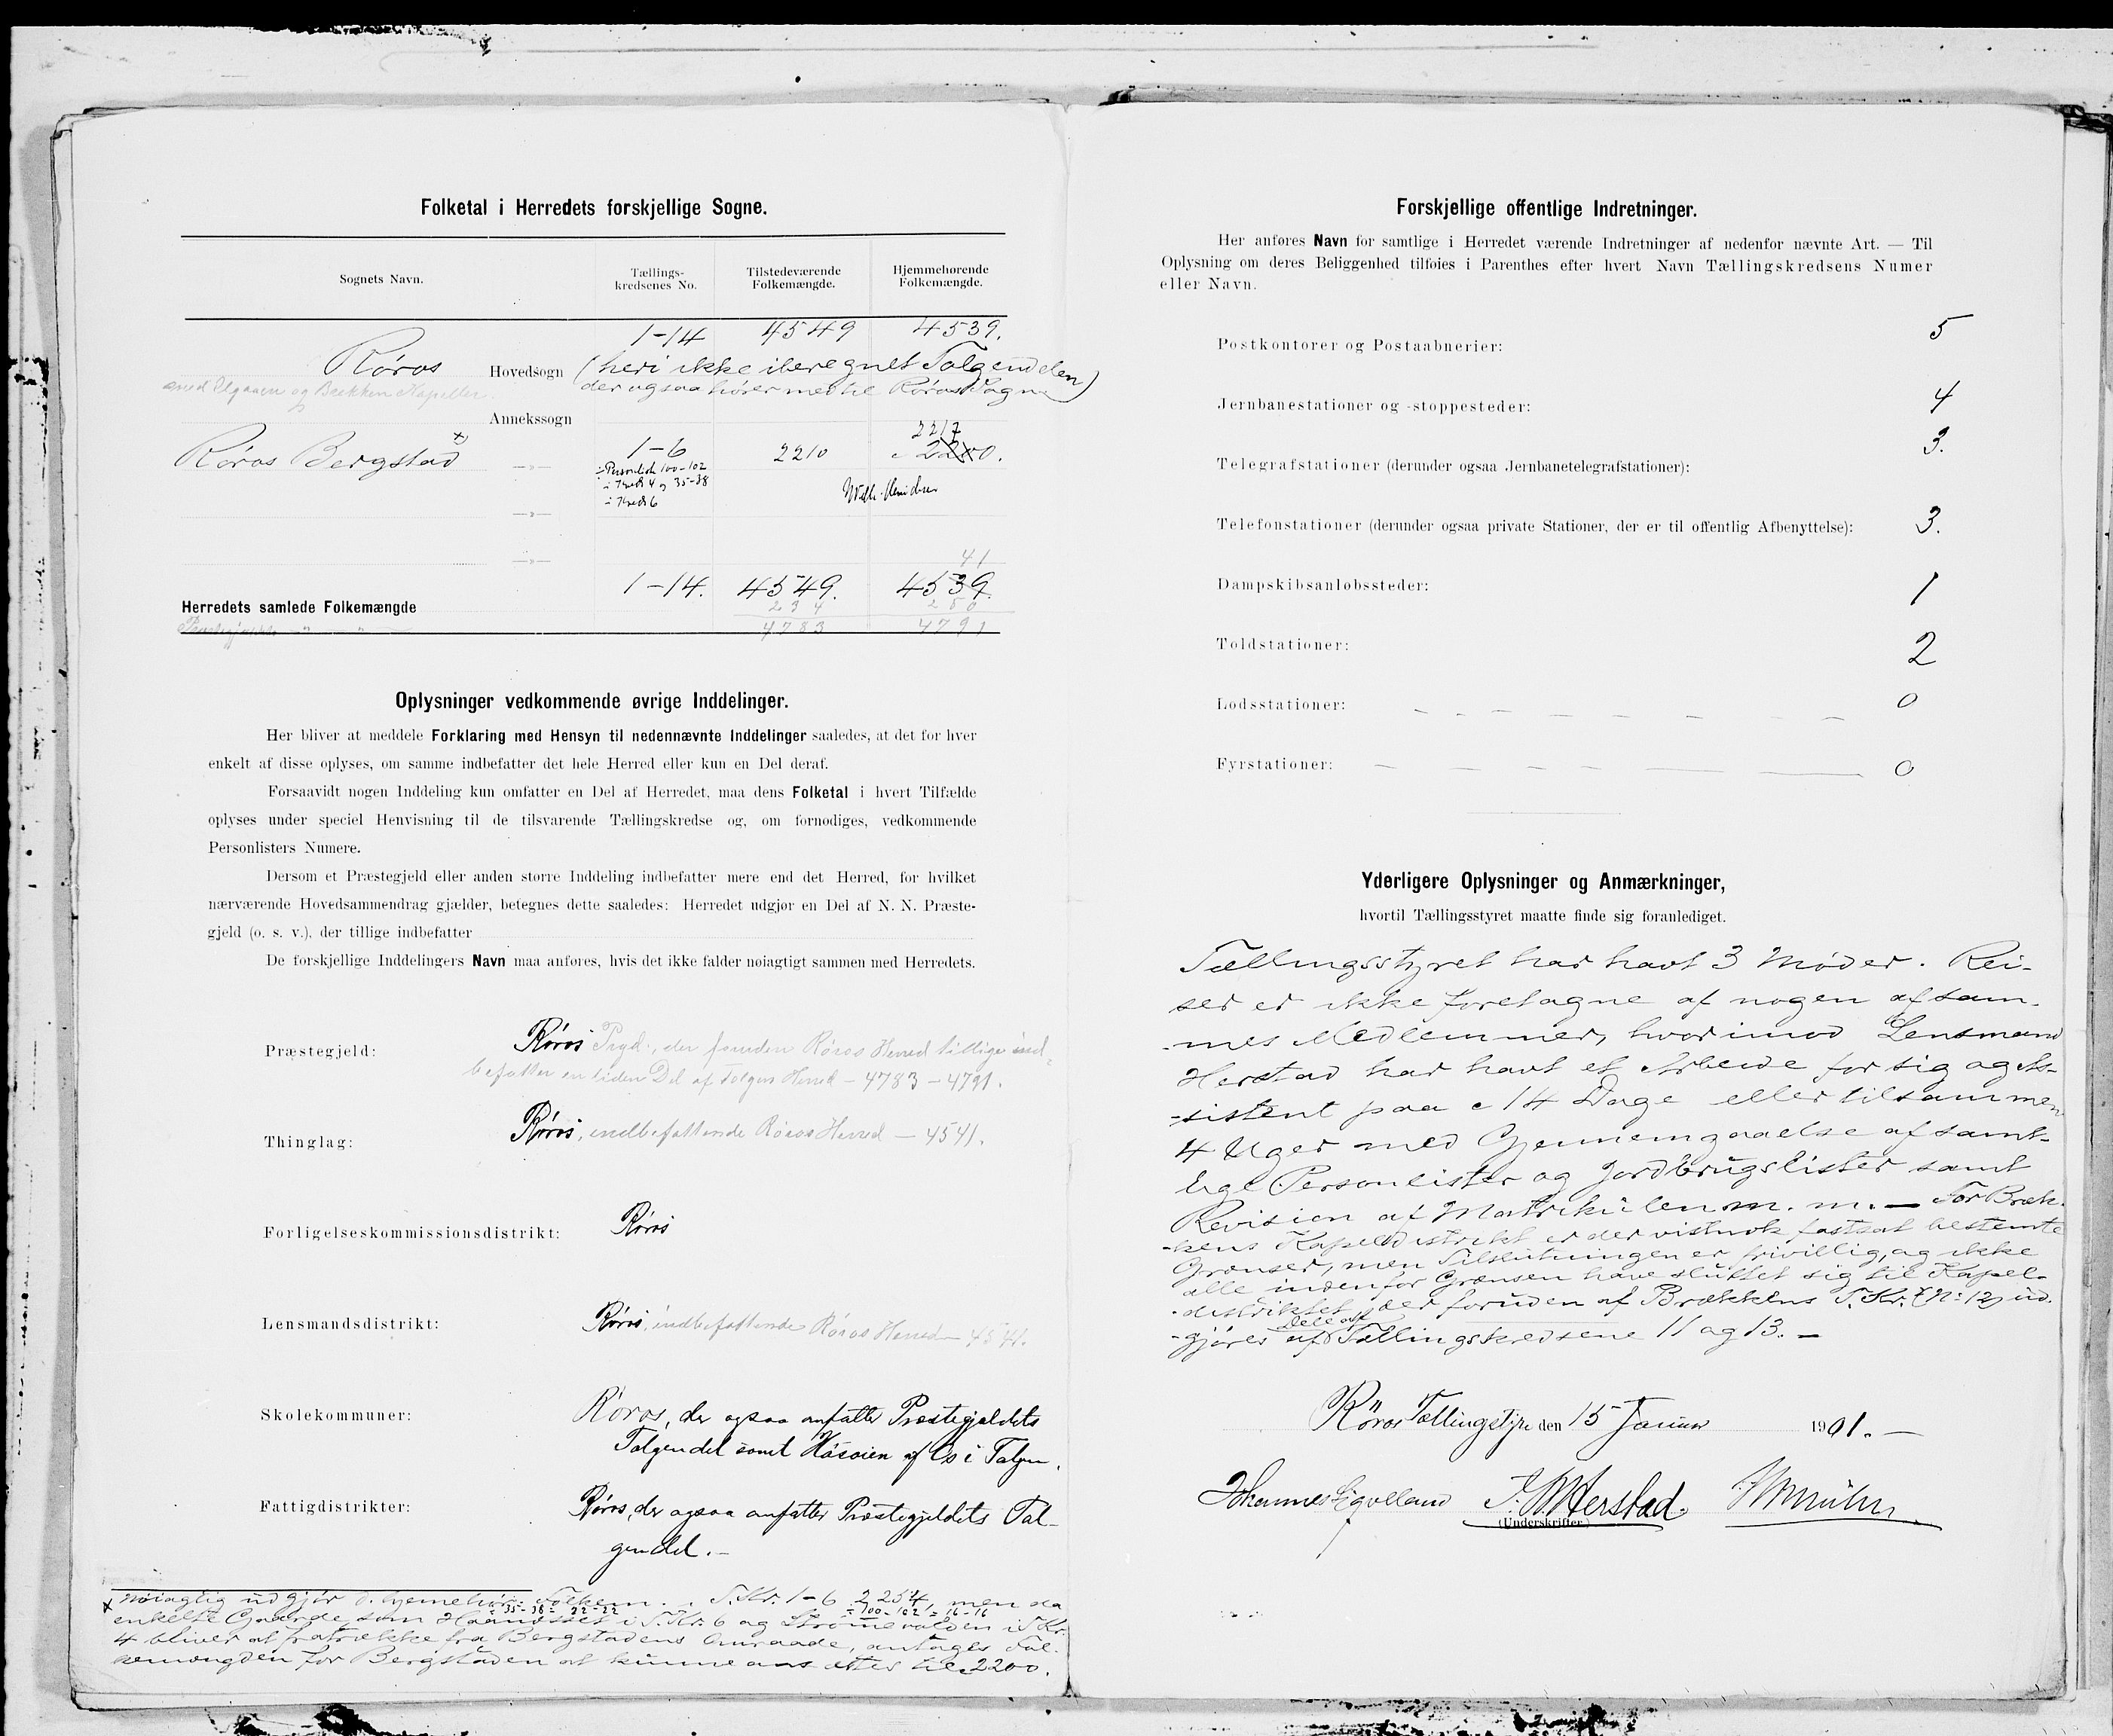 Folketal i Herredets forskjellige Sogne.
Sognets Navn.
Tællings-
kredsenes No.
Tilstedeværende
Folkemængde.
Hjemmehørende
Folkemængde.
1-14 4549 4539.
Røros Hovedsogn (heri ikke iberegnet Tolgendelen
med og Brekken Kapeller der ogsaa hører med til Røros Sogn)
Annekssogn
2217
Røros Bergstad x) —„— 1-6 2210 c 2200.
÷ Personliste 100-102
i Kreds 4 og 35-38
i Kreds 6
—„—
—„— 41
Herredets samlede Folkemængde 1-14. 4549. 4539.
234 250
4783 4791
Oplysninger vedkommende øvrige Inddelinger.
Her bliver at meddele Forklaring med Hensyn til nedennævnte Inddelinger saaledes, at det for hver
enkelt af disse oplyses, om samme indbefatter det hele Herred eller kun en Del deraf.
Forsaavidt nogen Inddeling kun omfatter en Del af Herredet, maa dens Folketal i hvert Tilfælde
oplyses under speciel Henvisning til de tilsvarende Tællingskredse og, om fornødiges, vedkommende
Personlisters Numere.
Dersom et Præstegjeld eller anden større Inddeling indbefatter mere end det Herred, for hvilket
nærværende Hovedsammendrag gjælder, betegnes dette saaledes: Herredet udgjør en Del af N. N. Præste-
gjeld (o. s. v.), der tillige indbefatter
De forskjellige Inddelingers Navn maa anføres, hvis det ikke falder nøiagtigt sammen med Herredets.
Præstegjeld: Røros Prgd., der foruden Røros Herred tillige ind-
befatter en liden Del af Tolgens Herred - 4783 - 4791.
Thinglag: Røros, indbefattende Røros Herred - 4541.
Forligelseskommissionsdistrikt: Røros
Lensmandsdistrikt: Røros, indbefattende Røros Herred - 4541.
Skolekommuner: Røros, der ogsaa omfatter Præstegjeldets
Tolgendel samt Håsøien af Os i Tolgen.
Fattigdistrikter: Røros, der ogsaa omfatter Præstegjeldets Tol-
gendel. -
x Nøiagtig udgjør d. hjemmehør. Folkem. i T.Kr. 1-6 2254, men da
÷ 35-38 = 22-22 ÷ 100-102 = 16-16
enkelte Gaarde, som i T.Kr. 6 og i T.Kr.
4 bliver at fratrække fra Bergstadens Omraade, antages Fol-
kemængden for Bergstaden at kunne ansættes til c 2200.
Forskjellige offentlige Indretninger.
Her anføres Navn for samtlige i Herredet værende Indretninger af nedenfor nævnte Art. — Til
Oplysning om deres Beliggenhed tilføies i Parenthes efter hvert Navn Tællingskredsens Numer
eller Navn.
Postkontorer og Postaabnerier: 5
Jernbanestationer og -stoppesteder: 4
Telegrafstationer (derunder ogsaa Jernbanetelegrafstationer): 3.
Telefonstationer (derunder ogsaa private Stationer, der er til offentlig Afbenyttelse): 3.
Dampskibsanløbssteder: 1
Toldstationer: 2
Lodsstationer: 0
Fyrstationer: 0
Yderligere Oplysninger og Anmærkninger,
hvortil Tællingsstyret maatte finde sig foranlediget.
Tællingsstyret har havt 3 Møder. Rei-
ser er ikke foretagne af nogen af sam-
-mes Medlemmer, hvorimod Lensmand
Herstad har havt et Arbeide for sig og As-
-sistent paa c 14 Dage eller tilsammen
4 Uger med Gjennemgaaelse af samt-
lige Personlister og Jordbrugslister samt
Revision af Matrikülen m. m. — For Bræk-
-kens Kapeldistrikt er der vistnok fastsat bestemte
Grænser, men Tilslutningen er frivillig, og ikke
alle indenfor Grænsen have sluttet sig til Kapel-
-distriktet, der foruden af Brækkens T.Kr. (No 12) ud-
Dele af
-gjøres af Tællingskredsene 11 og 13. —
Røros Tællingstyre den 15 Januar 1901. —
Johannes J. M Herstad.
(Underskrifter.)